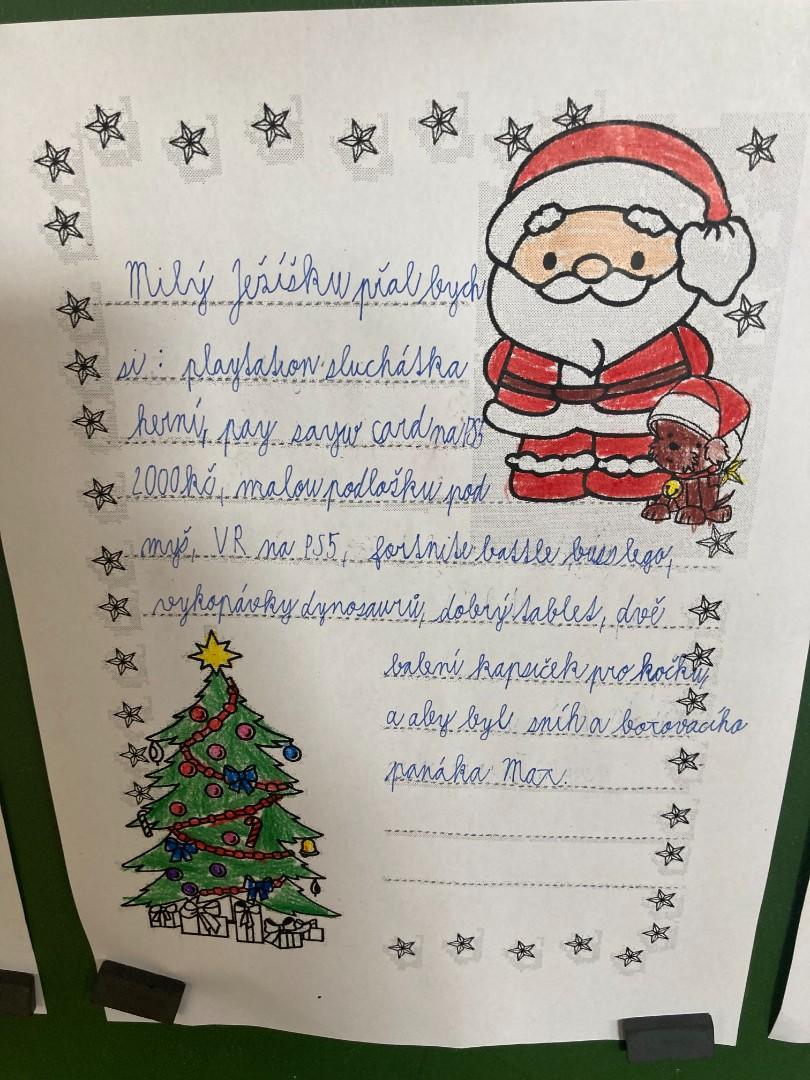 Milý Ježíšku přál bych
si: playtation sluchátka
herní, pay sayw card na PS5
2000kč, malou podložku pod
myš, VR na PS5, fortnite battle buss lego,
vykopávky dynosaurů, dobrý tablet, dvě
balení kapsiček pro kočku,
a aby byl sníh a boxovacího
panáka Max.